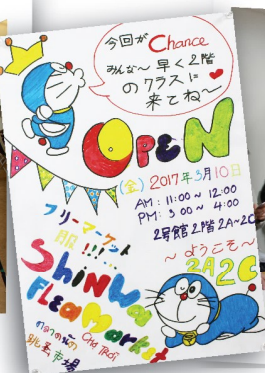 今回が Chance
みんな〜 早く2階
のクラスに
来てね〜
OPEN
(金) 2017年3月10日
AM: 11:00 〜 12:00
PM: 3:00 〜 4:00
2号館2階 2A〜2C
フリーマーケット
服!!!...
〜ようこそ〜
2A2C
Shinwa
FLEaMarket
ตลาดนัด Chợ TRời
跳蚤市場